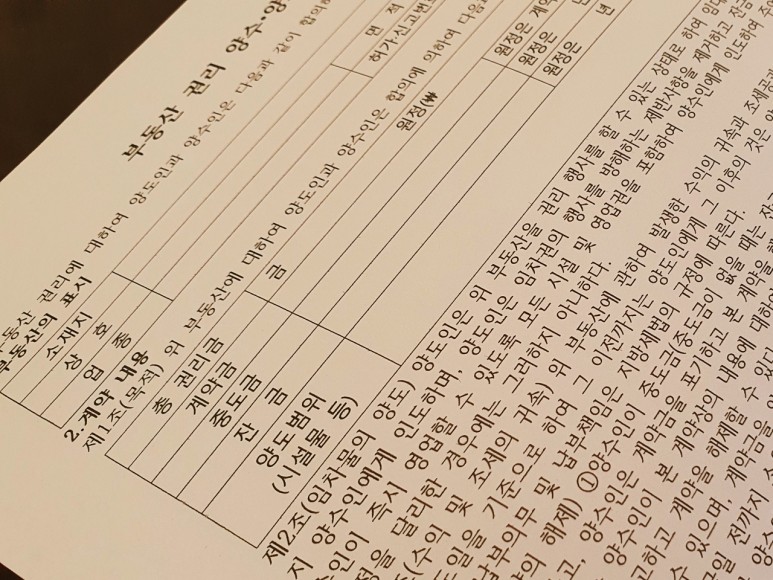 부동산 권리 양수·양
부동산 권리에 대하여 양도인과 양수인은 다음과 같이 합의하
부동산의 표시
소재지
상 호 면 적
업 종 허가(신고)번
2. 계약 내용
제1조(목적) 위 부동산에 대하여 양도인과 양수인은 합의에 의하여 다음과
총 권리금 금 원정(₩
계약금 원정은 계약
중도금 원정은 년
잔 금 원정은 년
양도범위
(시설물 등)
제2조(임차물의 양도) 양도인은 위 부동산을 권리 행사를 할 수 있는 상태로 하여 임대
지 양수인에게 인도하며, 양도인은 임차권의 행사를 방해하는 제반사항을 제거하고 잔금
수인이 즉시 영업할 수 있도록 모든 시설 및 영업권을 포함하여 양수인에게 인도하여 주어
정을 달리한 경우에는 그러하지 아니하다.
(수익 및 조세의 귀속) 위 부동산에 관하여 발생한 수익의 귀속과 조세공과
도일을 기준으로 하여 그 이전까지는 양도인에게 그 이후의 것은 양
납부의무 및 납부책임은 지방세법의 규정에 따른다.
약의 해제) ①양수인이 중도금(중도금이 없을 때는 잔금
고, 양수인은 계약금을 포기하고 본 계약을
양수인이 본 계약상의 내용에 대하
고하고 계약을 해제할 수 있다
수 있으며, 계약금을
일 전까지